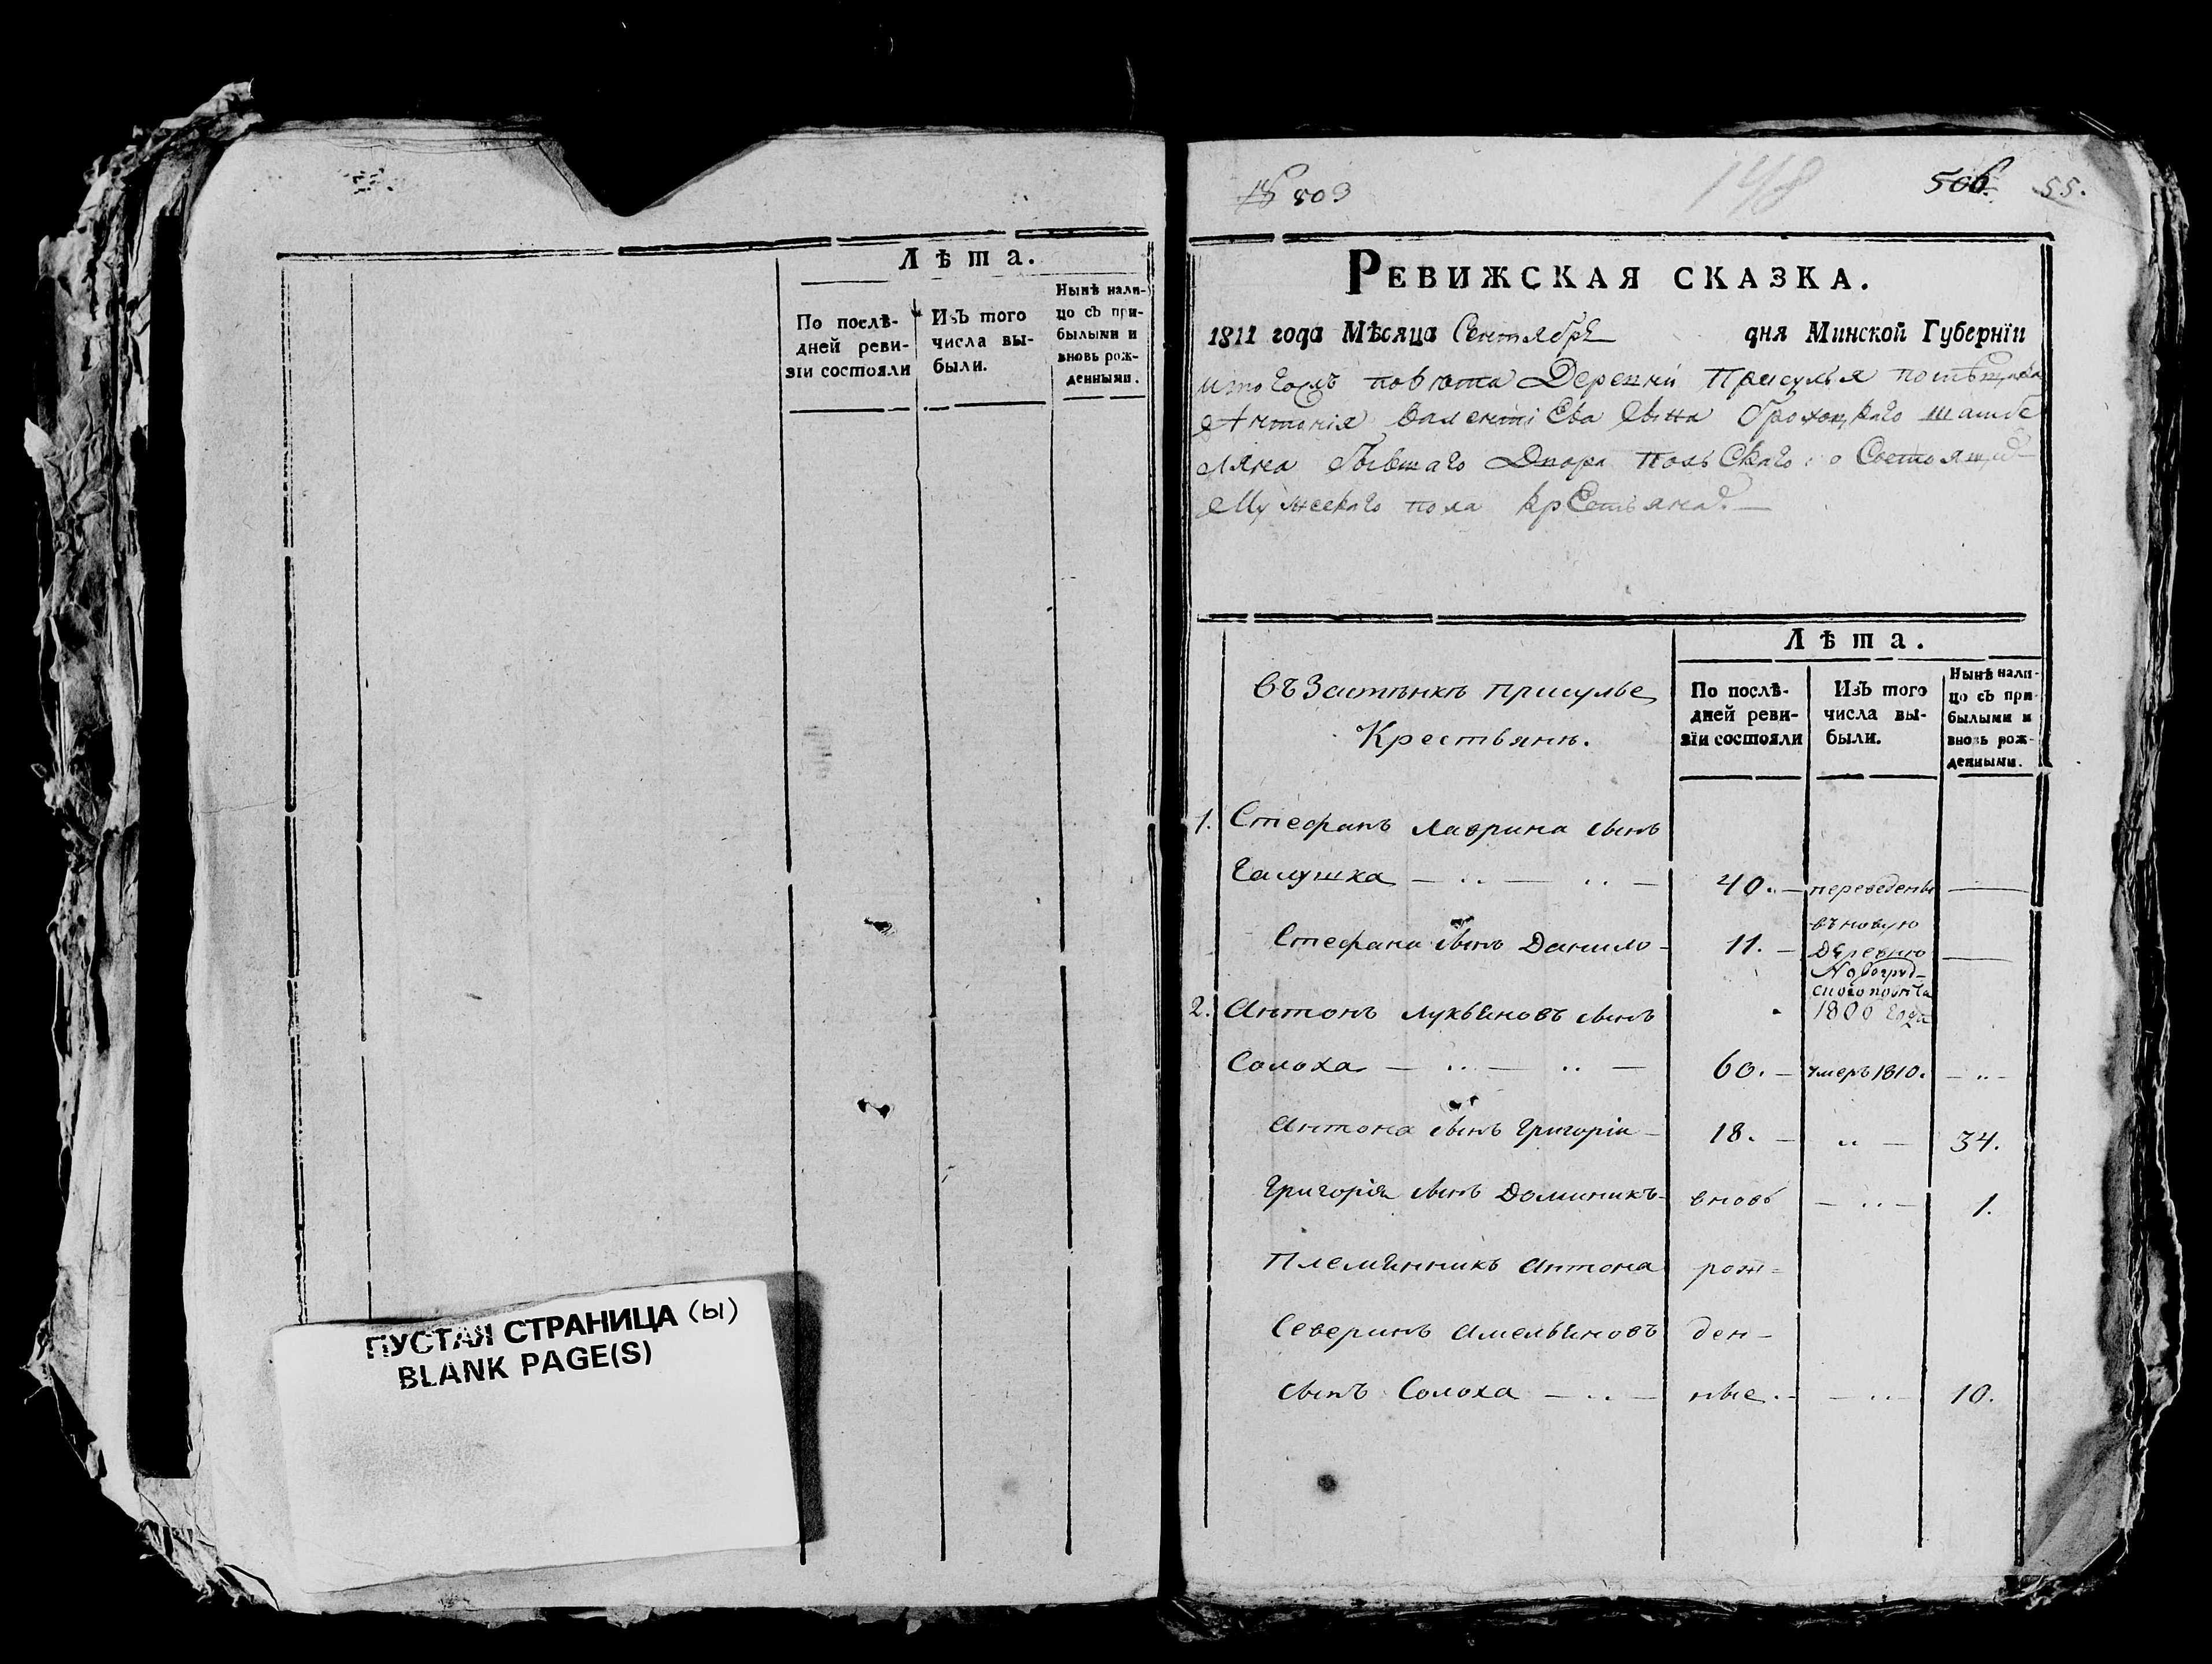 Лѣта.
По послѣ-
дней реви-
зїи состояли
Изъ того
числа вы-
были.
Нынѣ нали-
цо съ при-
былыми и
вновь рож-
денными.
ПУСТАЯ СТРАНИЦА (ы)
BLANK PAGE(S)
503
148
506. 55.
Ревижская сказка.
1811 года Мѣсяца Сентября дня Минской Губернїи
повѣта Деревни Присулья помѣщика
Антонія сына
бывшаго Двора Польскаго о Состоящихъ
Мужескаго пола крестьянахъ. —
Лѣта.
въ Застѣнкѣ Присулье
Крестьянъ.
По послѣ-
дней реви-
зїи состояли
Изъ того
числа вы-
были.
Нынѣ нали-
цо съ при-
былыми и
вновь рож-
денными.
1. Стефанъ Лаврина сынъ
Галушка — .. — .. — 40. — переведены —
въ новую
Стефана сынъ Данило — 11. — Деревню —
Новогруд-
скаго повѣта
2. Антонъ Лукьяновъ сынъ 1800 года
Солоха — .. — .. — 60. — умеръ 1810. — .. —
Антона сынъ Григорій — 18. — .. — 34.
Григорія сынъ Доминикъ — вновь — .. — 1.
Племянникъ Антона рож-
Северинъ Амельяновъ ден-
сынъ Солоха — .. — ные. — — .. — 10.